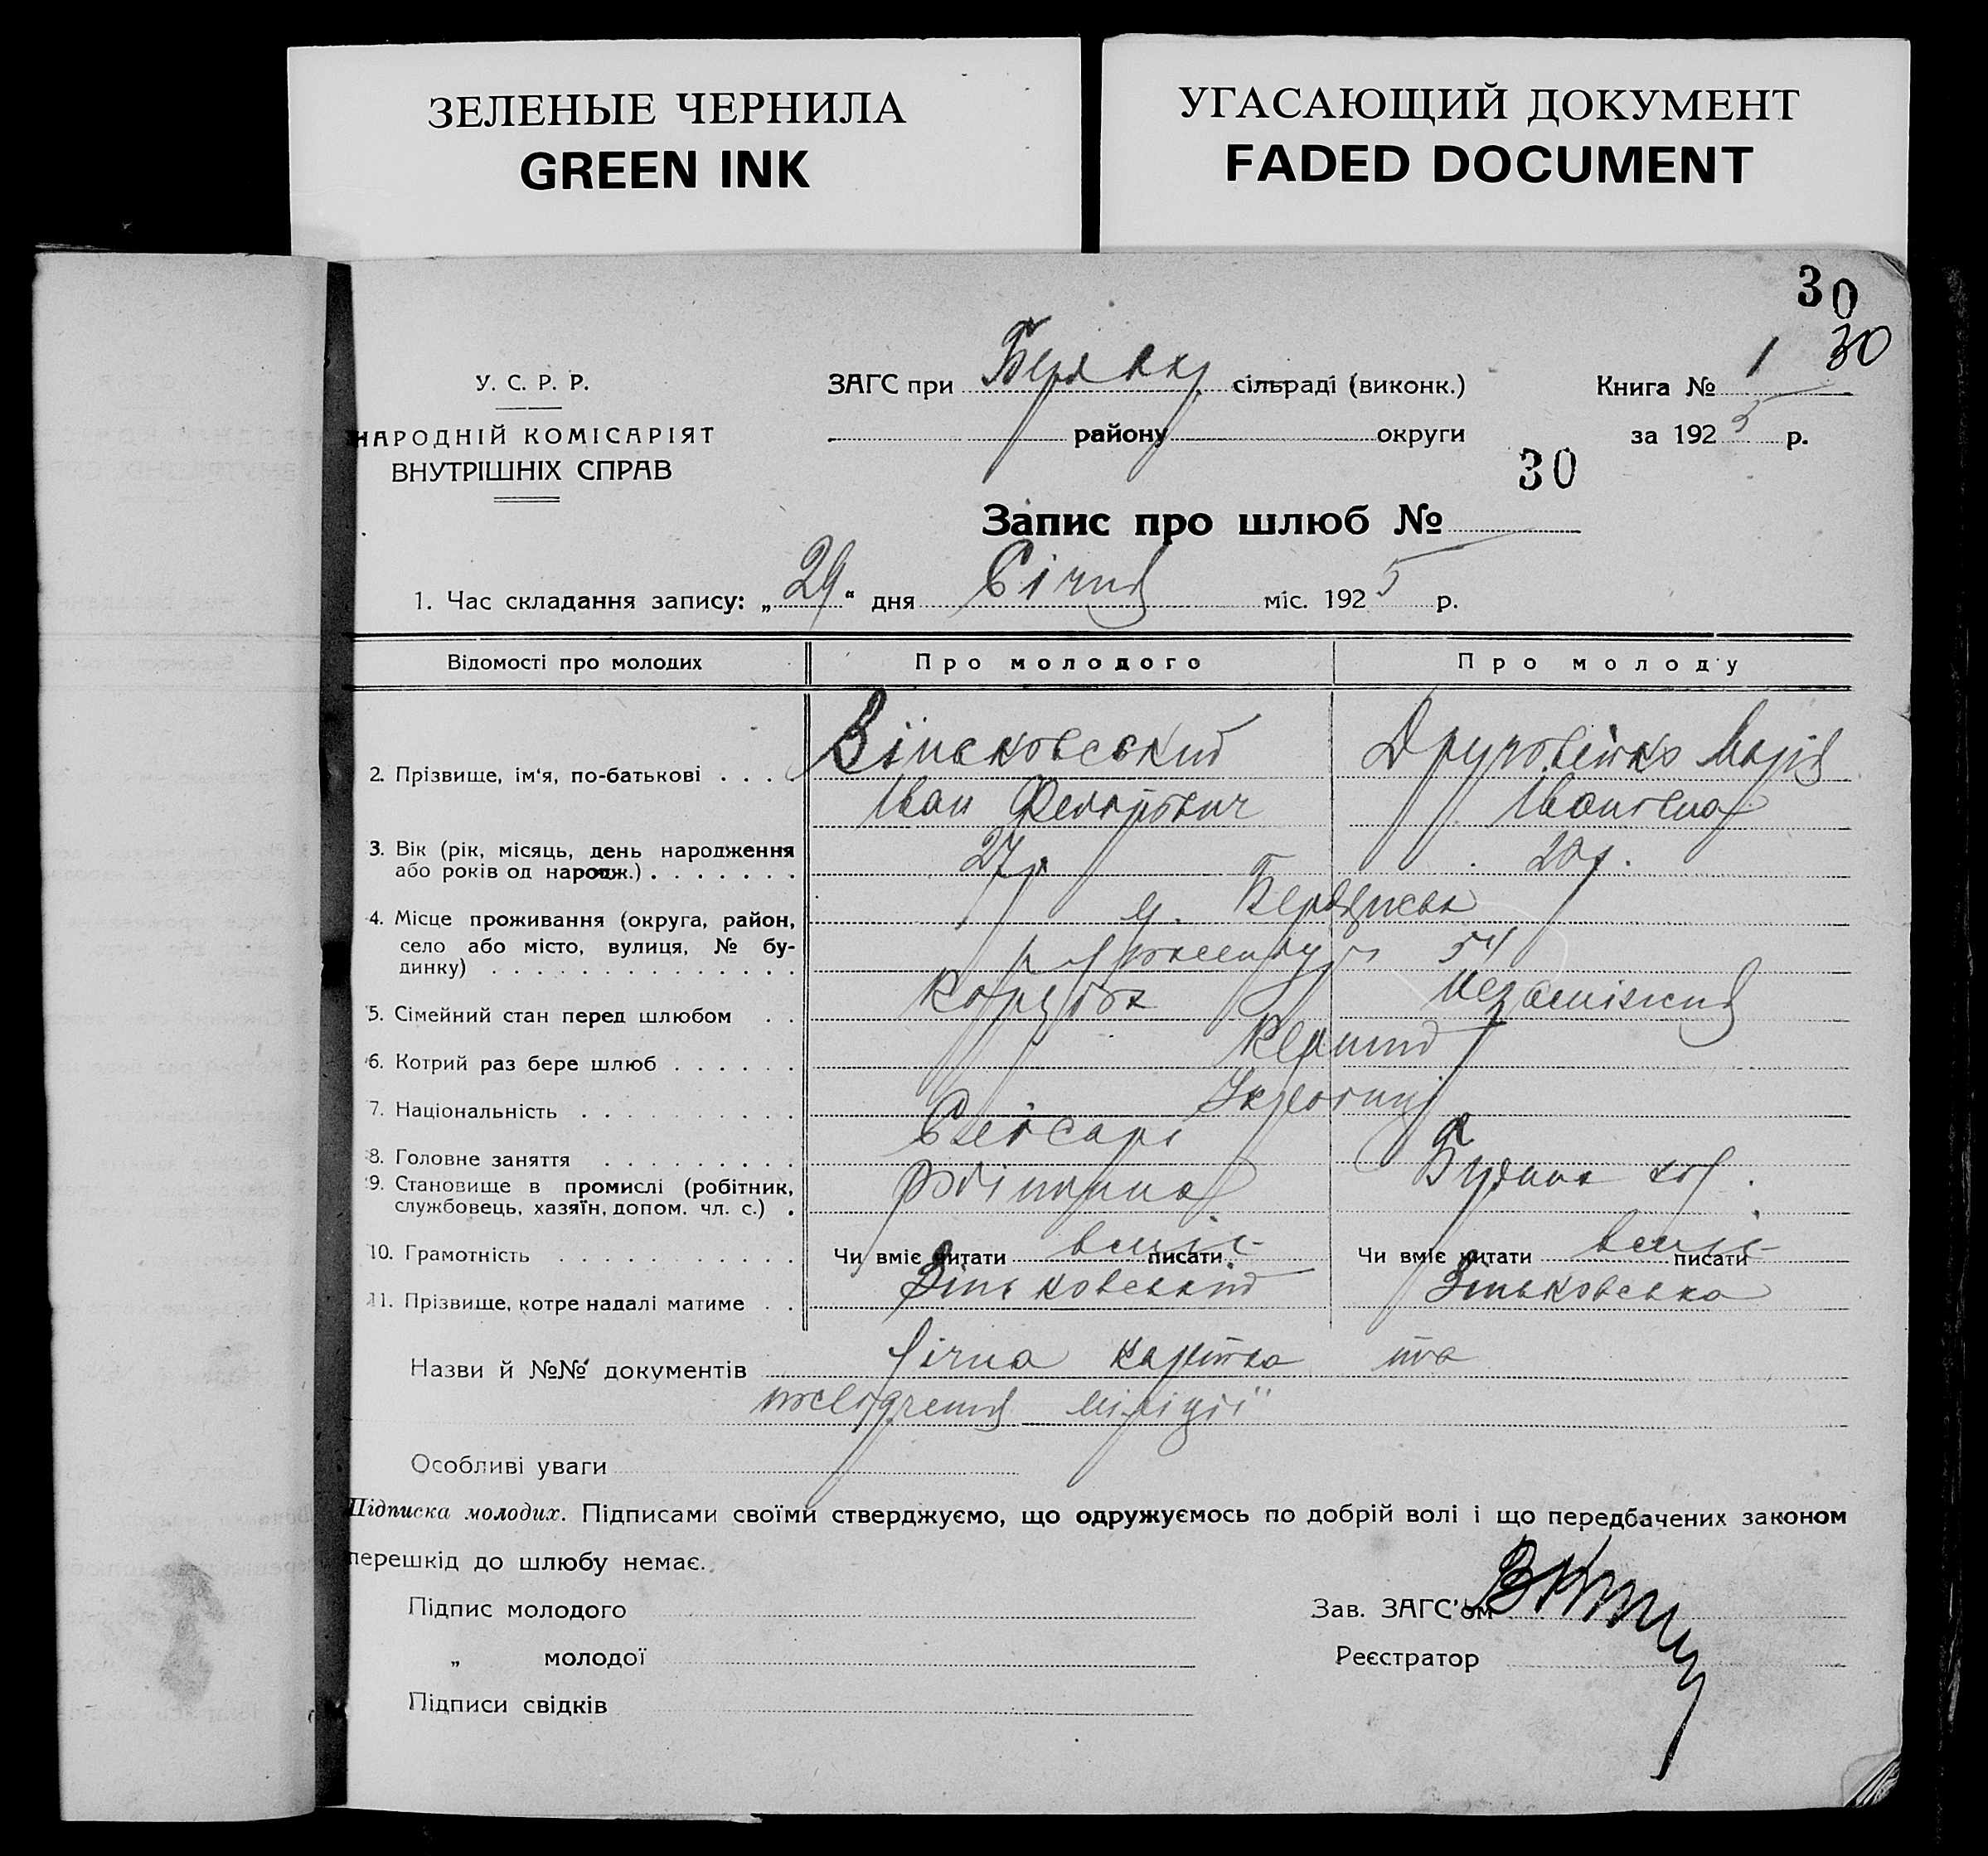 ЗЕЛЕНЫЕ ЧЕРНИЛА
GREEN INK
УГАСАЮЩИЙ ДОКУМЕНТ
FADED DOCUMENT
30
30
У. С. Р. Р.
НАРОДНІЙ КОМІСАРІЯТ
ВНУТРІШНІХ СПРАВ
ЗАГС при сільраді (виконк.)
району округи
Книга № 1
за 1925 р.
30
Запис про шлюб №
1. Час складання запису: „29“ дня Січня міс. 1925 р.
Відомості про молодих Про молодого Про молоду
2. Прізвище, ім'я, по-батькові . . . Зіньковський Марія
Іван Івановна
3. Вік (рік, місяць, день народження
або років од народж.) . . . . . . . 27р
4. Місце проживання (округа, район, м. Бердичева
село або місто, вулиця, № бу-
динку) . . . . . . . . . . . . . 54
5. Сімейний стан перед шлюбом . . незаміжня
6. Котрий раз бере шлюб . . . . . . Перший
7. Національність . . . . . . . . .
8. Головне заняття . . . . . . . . . Слюсарь
9. Становище в промислі (робітник,
службовець, хазяїн, допом. чл. с.) .
10. Грамотність . . . . . . . . . . Чи вміє читати вміє писати Чи вміє читати вміє писати
11. Прізвище, котре надалі матиме . . Зіньковський Зіньковська
Назви й №№ документів картка та
посвідчення міліції
Особливі уваги
Підписка молодих. Підписами своїми стверджуємо, що одружуємось по добрій волі і що передбачених законом
перешкід до шлюбу немає.
Підпис молодого
Зав. ЗАГС'ом
„ молодої
Реєстратор
Підписи свідків